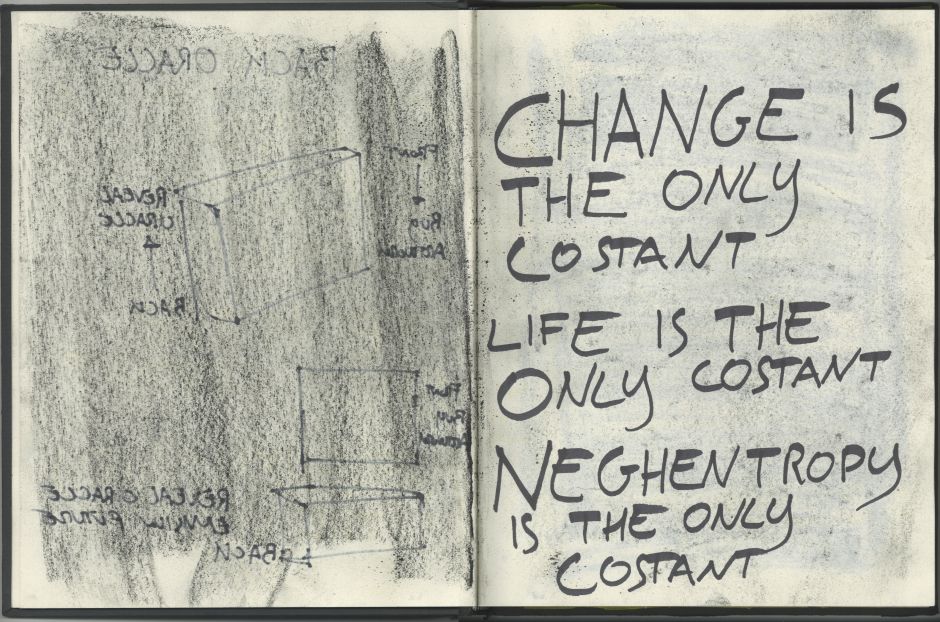 BACK ORACLE
FRONT
REVEAL
ORACLE
RUB
BACK
REVEAL ORACLE
BACK
CHANGE IS
THE ONLY
COSTANT
LIFE IS THE
ONLY COSTANT
NEGHENTROPY
IS THE ONLY
COSTANT